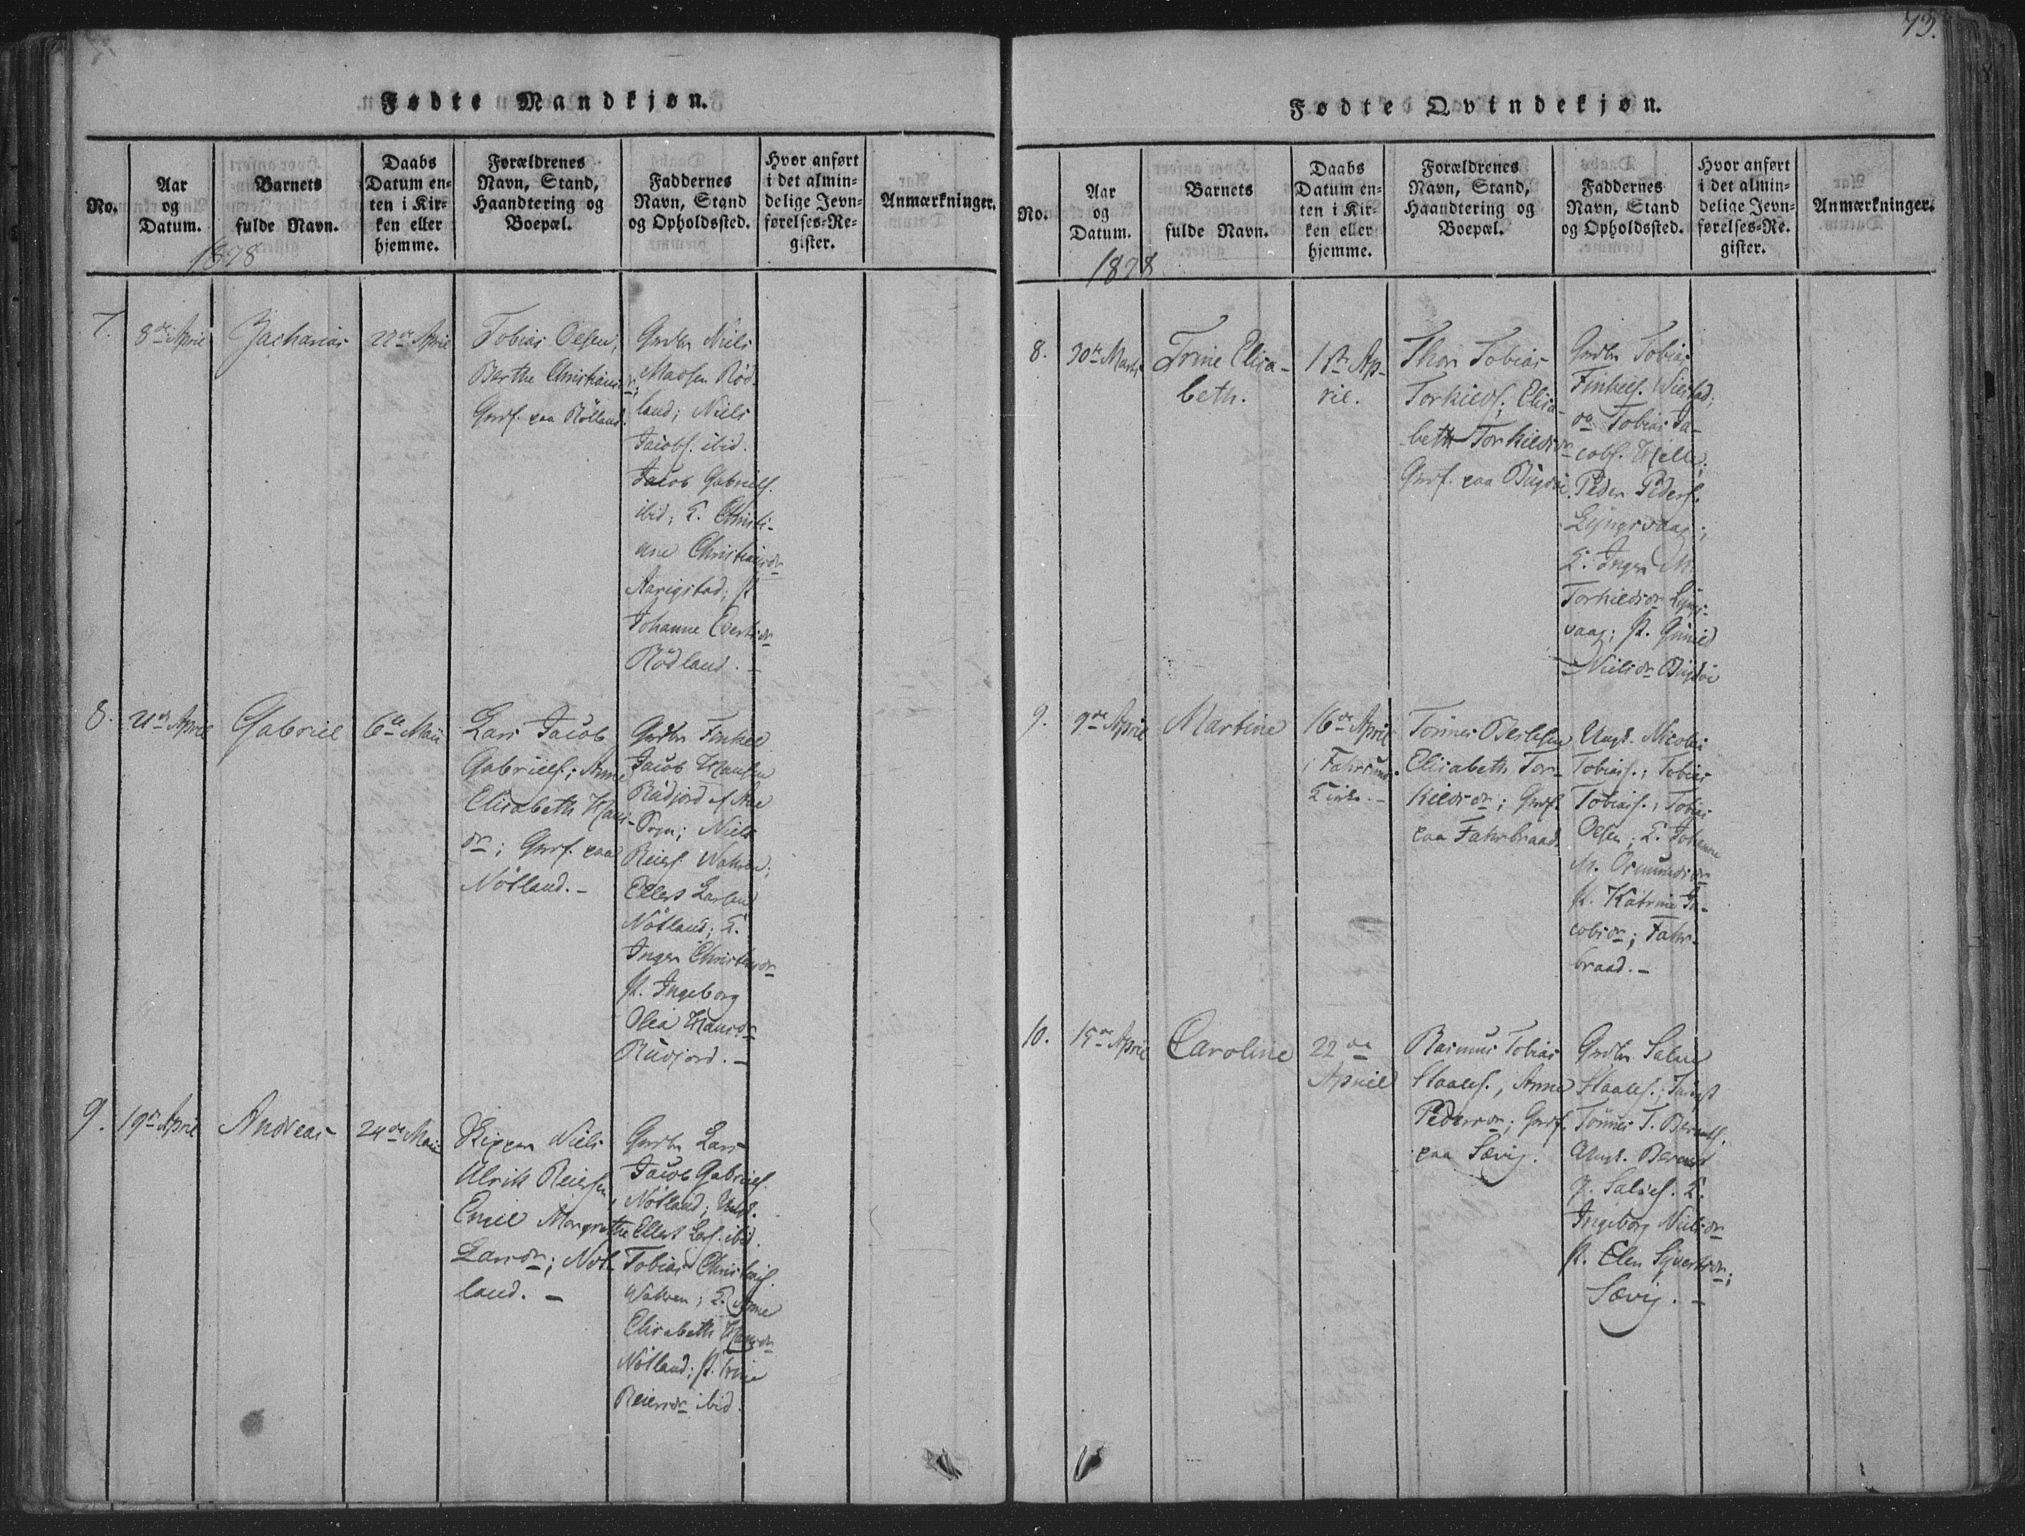 73.
Fødte Mandkjøn.
No.
Aar
og
Datum.
Barnets
fulde Navn.
Daabs
Datum en-
ten i Kir-
ken eller
hjemme.
Forældrenes
Navn, Stand,
Haandtering og
Boepæl.
Faddernes
Navn, Stand
og Opholdssted.
Hvor anført
i det almin-
delige Jevn-
førelses-Re-
gister.
Anmærkninger.
1828
7.
8de April
Zacharias
22de April
Tobias Olsen,
Berthe Christians
Grdf. paa Rølland.
Grdbr Niels
Madsen Rød-
land; Niels
Jacobs. ibid.
Jacob Gabriels.
ibid; K. Christi-
ane Christiansdr
Aarigstad; P.
Johanne Evertsdr
Rødland. –
8.
21de April
Gabriel
6te Maii
Lars Jacob
Gabriels.; Anne
Elisabeth Hans-
dr; Grdf. paa
Nötland. –
Grdbr Finkel
Jacob Hansen
Rudjord af Aae
Sogn; Niels
Reiers. Wahren;
Ellert Larsen
Nötland; K.
Inger Christensdr
P. Ingeborg
Olea Hansdr
Rudjord. –
9.
19de April
Andreas
24de Maii
Skipper Niels
Ulrik Reiersen,
Emel Margrethe
Larsdr; Nöt-
land. –
Grdbr Lars
Jacob Gabriels.
Nötland; Ungk.
Ellert Lars. ibid.
Tobias Christens.
Wahren; K. Anne
Elisabeth Hansdr
Nötland; P. Trine
Reiersdr ibid.
Fødte Qvindekjøn.
No.
Aar
og
Datum.
Barnets
fulde Navn.
Daabs
Datum en-
ten i Kir-
ken eller
hjemme.
Forældrenes
Navn, Stand,
Haandtering og
Boepæl.
Faddernes
Navn, Stand
og Opholdssted.
Hvor anført
i det almin-
delige Jevn-
førelses-Re-
gister.
Anmærkninger.
1828
8.
30te Marts
Trine Elisa-
beth.
1ste Ap-
ril.
Thor Tobias
Torkilds.; Elisa-
beth Torkildsdr
Grdf. paa Bugdöe
Grdbr Tobias
Finkels.
do Tobias Ja-
cobs. Helle;
Peder Peders.
Lyngsvaag;
K. Inger M.
Torkildsdr Lyngs-
vaag; P. Gunild
Nielsdr Bugdöe
9.
9de April
Martine
16de April
i Fahrsund
Kirke. –
Tönnes Bertelsen
Elisabeth Tor-
kildsdr; Grdf.
paa Fahrbraad.
Ungk. Nicolai
Tobias.; Tobias
Tobias.; Tobias
Olsen; K. Johanne
M. Osmundsdr
P. Katrine Ja-
cobsdr; Fahr-
braad. –
10.
15de April
Caroline
22de
April
Rasmus Tobias
Staales., Anne
Pedersdr; Grdf.
paa Sævig.
Grdbr Salve
Staales.;
Tönnes T. Bernts.
Ungk. Berent
Salves. K.
Ingeborg Nielsdr
P. Elen Syvertsdr;
Sævig. –